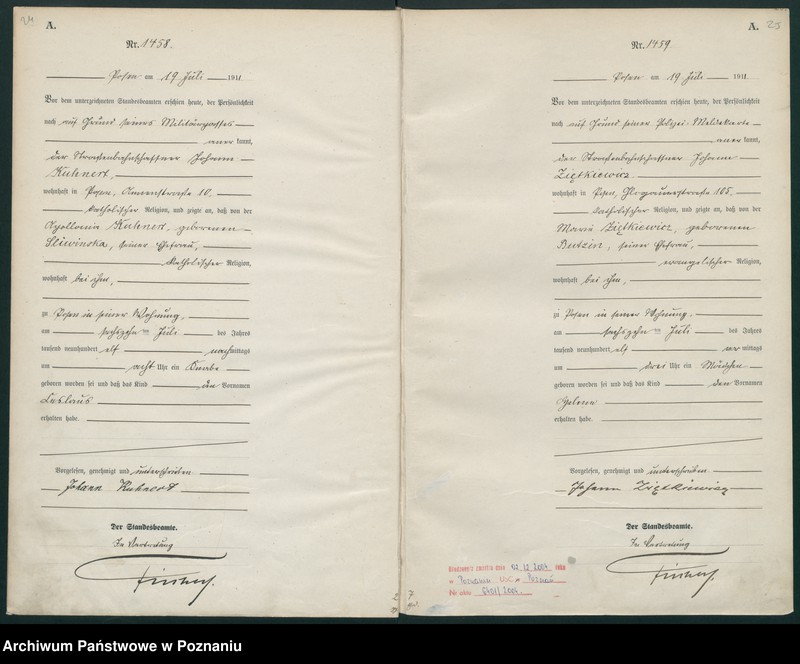 24
A.
Nr. 1458.
Posen am 19 Juli 1911
Vor dem unterzeichneten Standesbeamten erschien heute, der Persönlichkeit
nach auf Grund seines Militärpasses
kannt,
der Straßenbahnschaffner Johann
Kuhnert,
wohnhaft in Posen, 10,
katholischer Religion, und zeigte an, daß von der
Apollonia Kuhnert, geborenen
Sliwinska, seiner Ehefrau,
katholischer Religion,
wohnhaft bei ihm,
zu Posen in seiner Wohnung,
am sechszehn ten Juli des Jahres
tausend neunhundert elf nachmittags
um acht Uhr ein Knabe
geboren worden sei und daß das Kind den Vornamen
Ceslaus
erhalten habe.
Vorgelesen, genehmigt und unterschrieben
Johann Kuhnert
Der Standesbeamte.
In Vertretung
A. 25
Nr. 1459.
Posen am 19 Juli 1911
Vor dem unterzeichneten Standesbeamten erschien heute, der Persönlichkeit
nach auf Grund seiner Polizei-Meldekarte
kannt,
der Straßenbahnschaffner Johann
Ziętkiewicz
wohnhaft in Posen, 105,
katholischer Religion, und zeigte an, daß von der
Maria Ziętkiewicz, geborenen
Butzin, seiner Ehefrau,
evangelischer Religion,
wohnhaft bei ihm,
zu Posen in seiner Wohnung,
am sechszehn ten Juli des Jahres
tausend neunhundert elf vormittags
um drei Uhr ein Mädchen
geboren worden sei und daß das Kind den Vornamen
Helene
erhalten habe.
Vorgelesen, genehmigt und unterschrieben
Johann Ziętkiewicz
Der Standesbeamte.
In Vertretung
12 2004
w Poznaniu USC Poznań
2004.
Archiwum Państwowe w Poznaniu